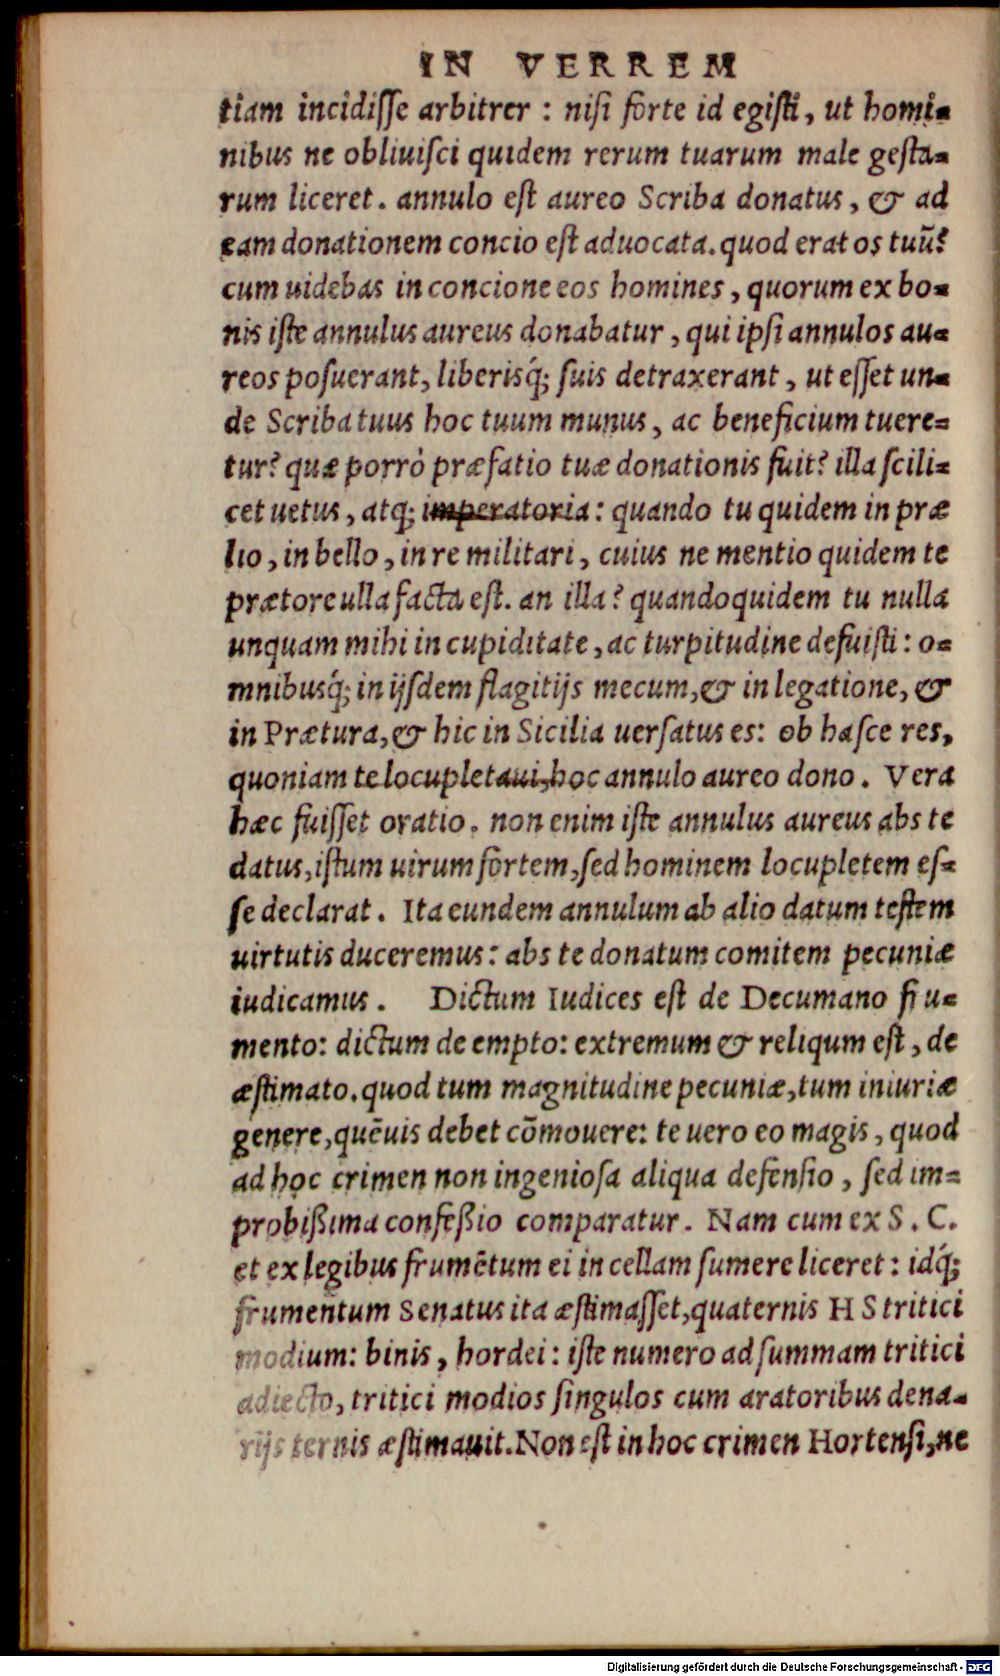 IN VERREM
tiam incidisse arbitrer : nisi forte id egisti, ut homi-
nibus ne obliuisci quidem rerum tuarum male gesta-
rum liceret. annulo est aureo Scriba donatus, & ad
eam donationem concio est aduocata. quod erat os tuũ?
cum uidebas in concione eos homines, quorum ex bo-
nis iste annulus aureus donabatur, qui ipsi annulos au-
reos posuerant, liberisq́; suis detraxerant, ut esset un-
de Scriba tuus hoc tuum munus, ac beneficium tuere-
tur? quæ porrò præfatio tuæ donationis fuit? illa scili-
cet uetus, atq; imperatoria: quando tu quidem in præ
lio, in bello, in re militari, cuius ne mentio quidem te
prætore ulla facta est. an illa? quandoquidem tu nulla
unquam mihi in cupiditate, ac turpitudine defuisti: o-
mnibusq́; in ijsdem flagitijs mecum, & in legatione, &
in Prætura, & hic in Sicilia uersatus es: ob hasce res,
quoniam te locupletaui, hoc annulo aureo dono. Vera
hæc fuisset oratio. non enim iste annulus aureus abs te
datus, istum uirum fortem, sed hominem locupletem es-
se declarat. Ita eundem annulum ab alio datum testem
uirtutis duceremus: abs te donatum comitem pecuniæ
iudicamus. Dictum Iudices est de Decumano fru-
mento: dictum de empto: extremum & reliqum est, de
æstimato. quod tum magnitudine pecuniæ, tum iniuriæ
genere, quẽuis debet cõmouere: te uero eo magis, quod
ad hoc crimen non ingeniosa aliqua defensio, sed im-
probißima confeßio comparatur. Nam cum ex S. C.
et ex legibus frumẽtum ei in cellam sumere liceret: idq́;
frumentum Senatus ita æstimasset, quaternis HS tritici
modium: binis, hordei: iste numero ad summam tritici
adiecto, tritici modios singulos cum aratoribus dena-
rijs ternis æstimauit. Non est in hoc crimen Hortensi, ne
Digitalisierung gefördert durch die Deutsche Forschungsgemeinschaft - DFG